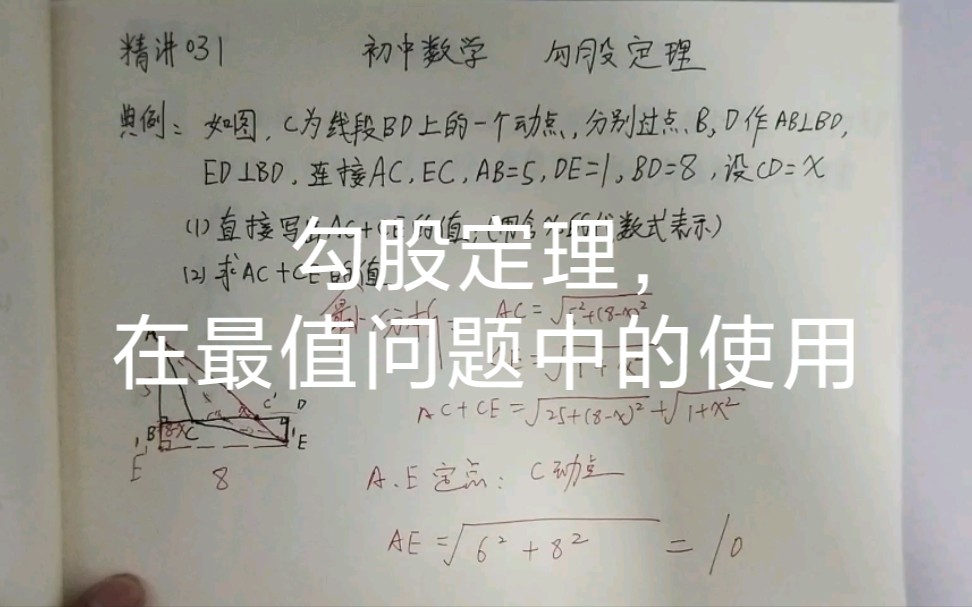 精讲031 初中数学 勾股定理
典例: 如图, C为线段BD上的一个动点, 分别过点B, D作AB⊥BD,
ED⊥BD, 连接AC, EC, AB=5, DE=1, BD=8, 设CD=x
(1) 直接写出AC+CE的值 代数式表示)
(2) 求AC+CE的 值
勾股定理,
在最值问题中的使用
AC=√5²+(8-x)²
=√1+x²
AC+CE=√25+(8-x)²+√1+x²
A
B 8-x C C' D
1 1 E
E'
8
A、E定点: C动点
AE=√6²+8² = 10